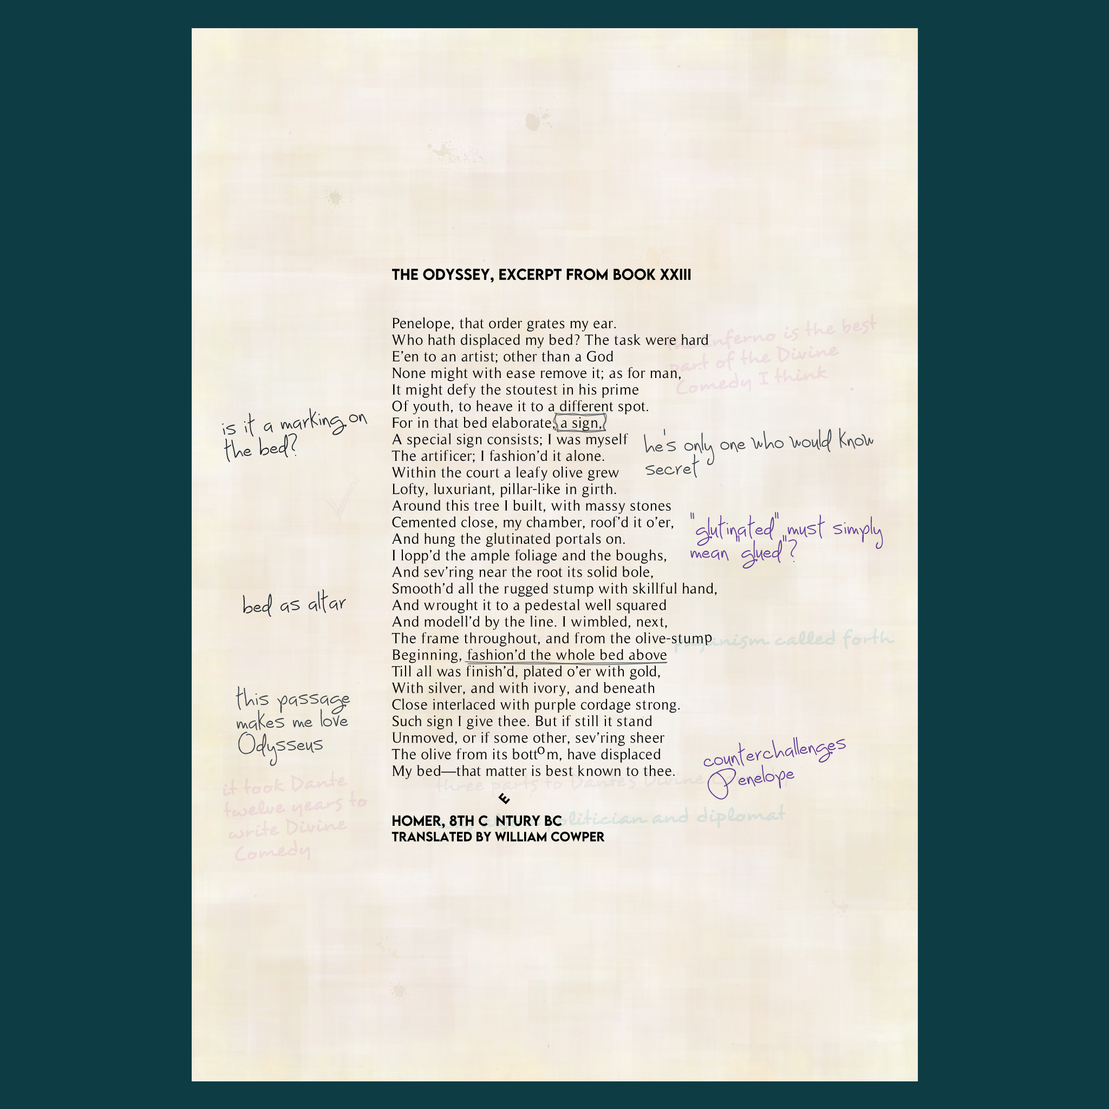 THE ODYSSEY, EXCERPT FROM BOOK XXIII
Penelope, that order grates my ear.
Who hath displaced my bed? The task were hard
E'en to an artist; other than a God
None might with ease remove it; as for man,
It might defy the stoutest in his prime
Of youth, to heave it to a different spot.
For in that bed elaborate, a sign,
A special sign consists; I was myself
The artificer; I fashion'd it alone.
Within the court a leafy olive grew
Lofty, luxuriant, pillar-like in girth.
Around this tree I built, with massy stones
Cemented close, my chamber, roof'd it o'er,
And hung the glutinated portals on.
I lopp'd the ample foliage and the boughs,
And sev'ring near the root its solid bole,
Smooth'd all the rugged stump with skillful hand,
And wrought it to a pedestal well squared
And modell'd by the line. I wimbled, next,
The frame throughout, and from the olive-stump
Beginning, fashion'd the whole bed above
Till all was finish'd, plated o'er with gold,
With silver, and with ivory, and beneath
Close interlaced with purple cordage strong.
Such sign I give thee. But if still it stand
Unmoved, or if some other, sev'ring sheer
The olive from its bottom, have displaced
My bed—that matter is best known to thee.
E
HOMER, 8TH C NTURY BC
TRANSLATED BY WILLIAM COWPER
is it a marking on
the bed?
bed as altar
this passage
makes me love
Odysseus
he's only one who would know
secret
"glutinated" must simply
mean "glued"?
counterchallenges
Penelope
inferno is the best
part of the Divine
Comedy I think
paganism called forth
it took Dante
twelve years to
write Divine
Comedy
three parts to Dante's Divine
politician and diplomat